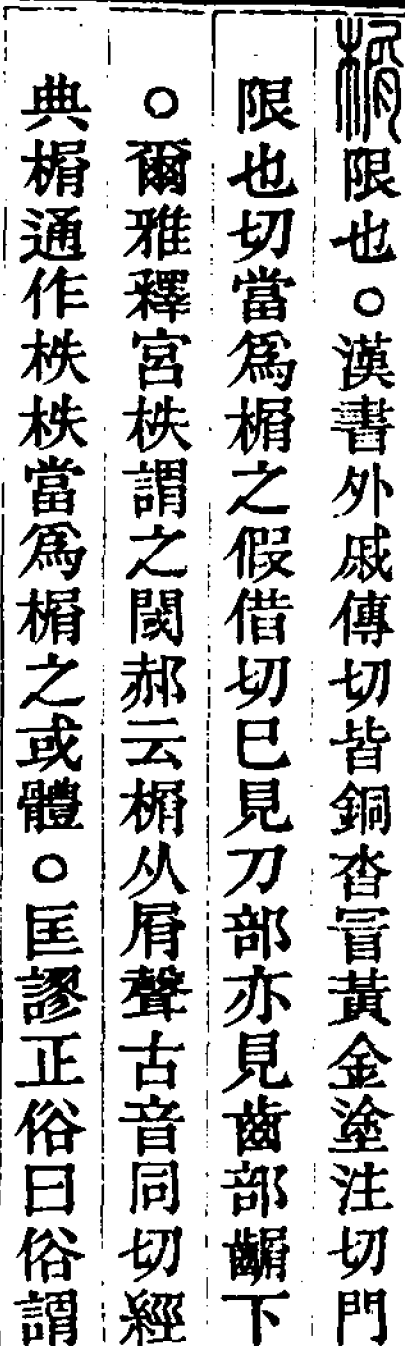 榍限也○漢書外戚傳切皆銅沓冒黃金塗注切門
限也切當爲榍之假借切已見刀部亦見齒部𪙨下
○爾雅釋宮柣謂之閾郝云榍从屑聲古音同切經
典榍通作柣柣當爲榍之或體○匡謬正俗曰俗謂